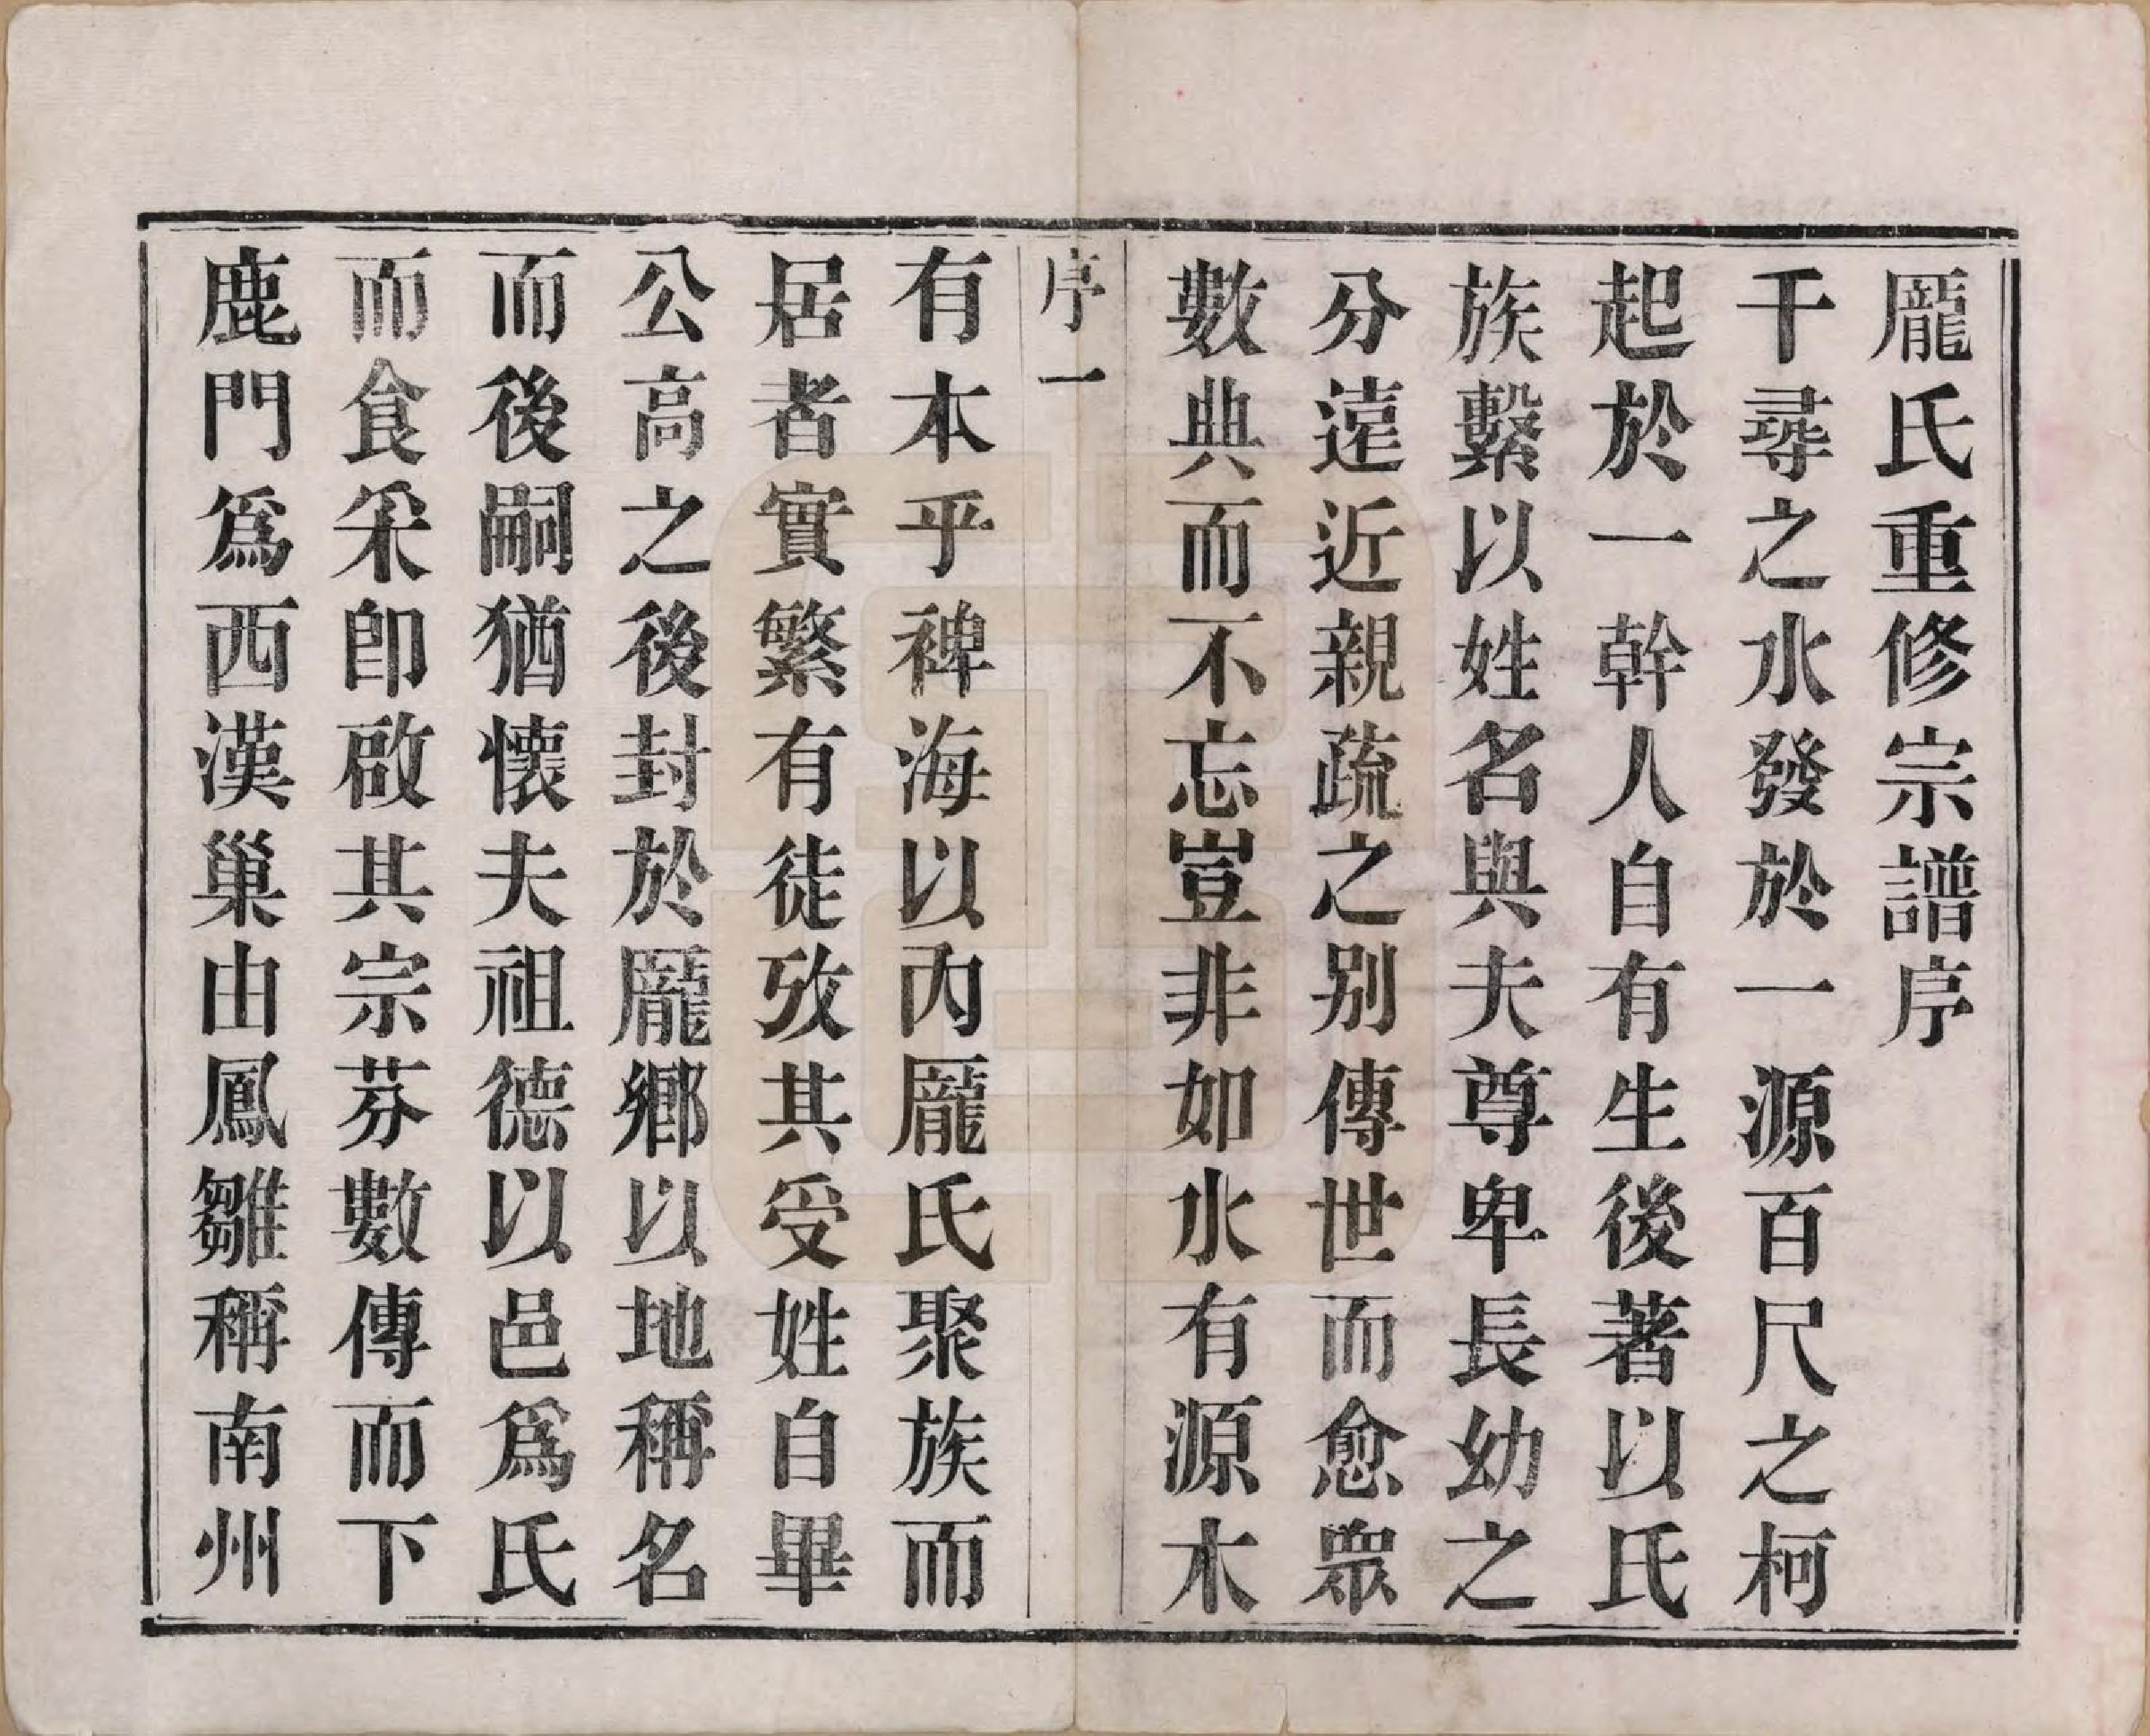 龎氏重修宗譜序
千尋之水發於一源百尺之柯
起於一幹人自有生後著以氏
族繫以姓名與夫尊卑長幼之
分遠近親疏之别傳世而愈眾
數典而不忘豈非如水有源木
序一
有本乎裨海以内龎氏聚族而
居者實繁有徒攷其受姓自畢
公高之後封於龎鄉以地稱名
而後嗣猶懷夫祖德以邑爲氏
而食采卽啟其宗芬數傳而下
鹿門爲西漢巢由鳳雛稱南州